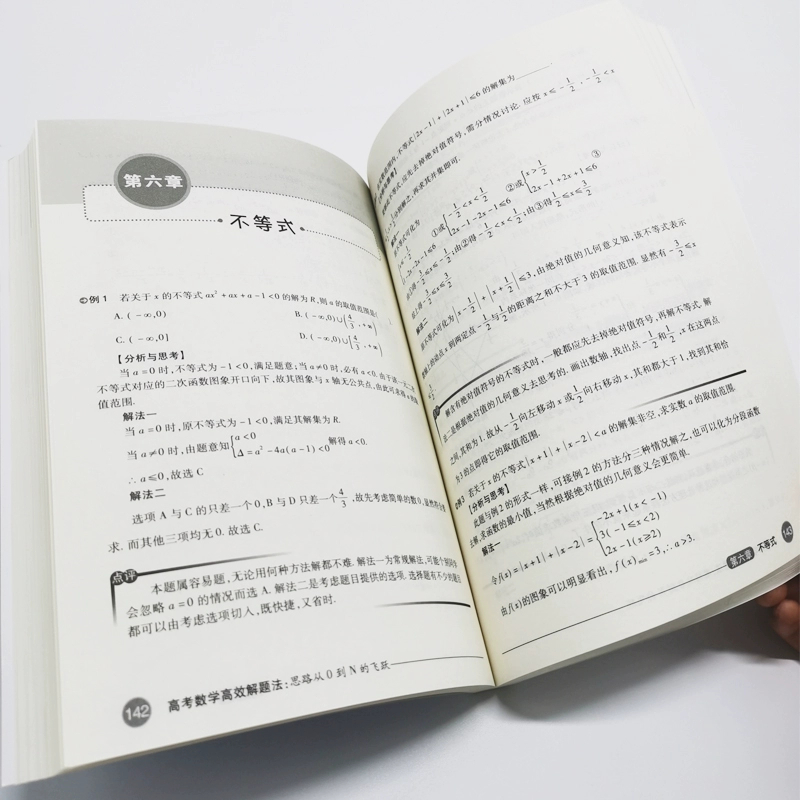 第六章
不等式
例1 若关于 x 的不等式 ax²+ax+a-1<0 的解为 R,则 a 的取值范围是(
A. (-∞,0)
B. (-∞,0)∪(4/3,+∞)
C. (-∞,0]
D. (-∞,0]∪(4/3,+∞)
【分析与思考】
当 a=0 时,不等式为 -1<0,满足题意;当 a≠0 时,必有 a<0.由于该一元二次
不等式对应的二次函数图象开口向下,故其图象与 x 轴无公共点,由此可求得 a 的取
值范围.
解法一
当 a=0 时,原不等式为 -1<0,满足其解集为 R.
当 a≠0 时,由题意知{a<0 Δ=a²-4a(a-1)<0 解得 a<0.
∴ a≤0,故选 C
解法二
选项 A 与 C 的只差一个 0,B 与 D 只差一个 4/3,故先考虑简单的数 0,显然符合要
求.而其他三项均无 0.故选 C.
点评
本题属容易题,无论用何种方法解都不难.解法一为常规解法,可能个别同学
会忽略 a=0 的情况而选 A.解法二是考虑题目提供的选项.选择题有不少的题目
都可以由考虑选项切入,既快捷,又省时.
142 高考数学高效解题法:思路从 0 到 N 的飞跃
不等式|2x-1|+|2x+1|≤6 的解集为
不等式,应先去掉绝对值符号,需分情况讨论.应按 x≤-1/2, -1/2<x
分别解之,再求其并集即可.
解法一
不等式可化为
①或{-1/2<x<1/2 2x-1-2x-1≤6 ②或{x>1/2 2x-1+2x+1≤6 ③
由②得-1/2<x<1/2;由③得1/2≤x≤3/2
解法二
不等式可化为|x-1/2|+|x+1/2|≤3,由绝对值的几何意义知,该不等式表示
数轴上的点 x 到两定点-1/2与1/2的距离之和不大于 3 的取值范围.显然有-3/2≤x
解含有绝对值符号的不等式时,一般都应先去掉绝对值符号,再解不等式.解
法二是根据绝对值的几何意义去思考的.画出数轴,找出点-1/2和1/2,x 在这两点
之间,其和为 1.故从-1/2向左移动 x 或1/2向右移动 x,其和都大于 1,找到其和恰
为 3 的点即得它的取值范围.
例3 若关于 x 的不等式|x+1|+|x-2|<a 的解集非空,求实数 a 的取值范围.
【分析与思考】
此题与例 2 的形式一样,可按例 2 的方法分三种情况解之,也可以化为分段函数
去解,求函数的最小值,当然根据绝对值的几何意义会更简单.
解法一
令 f(x)=|x+1|+|x-2|={-2x+1(x<-1) 3(-1≤x<2) 2x-1(x≥2)
由 f(x)的图象可以明显看出,f(x)min=3,∴a>3.
第六章 不等式 143